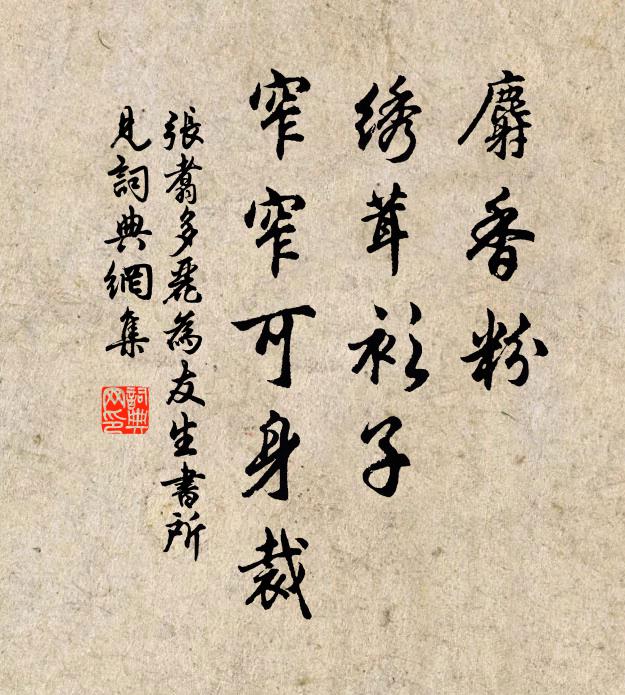 麝香粉
绣茸衫子
窄窄可身裁
張翥多麗為友生書所
見詞典網集
詞典網印